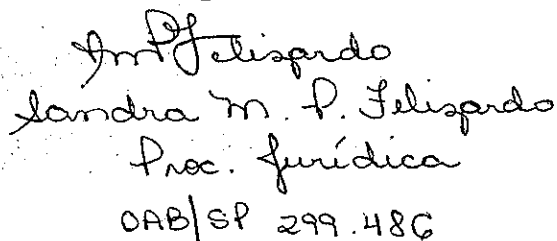 SmPFelizardo
Sandra M. P. Felizardo
Proc. Jurídica
OAB/SP 299.486